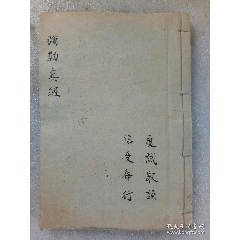 彌勒真經
虔誠敬誦
信受奉行